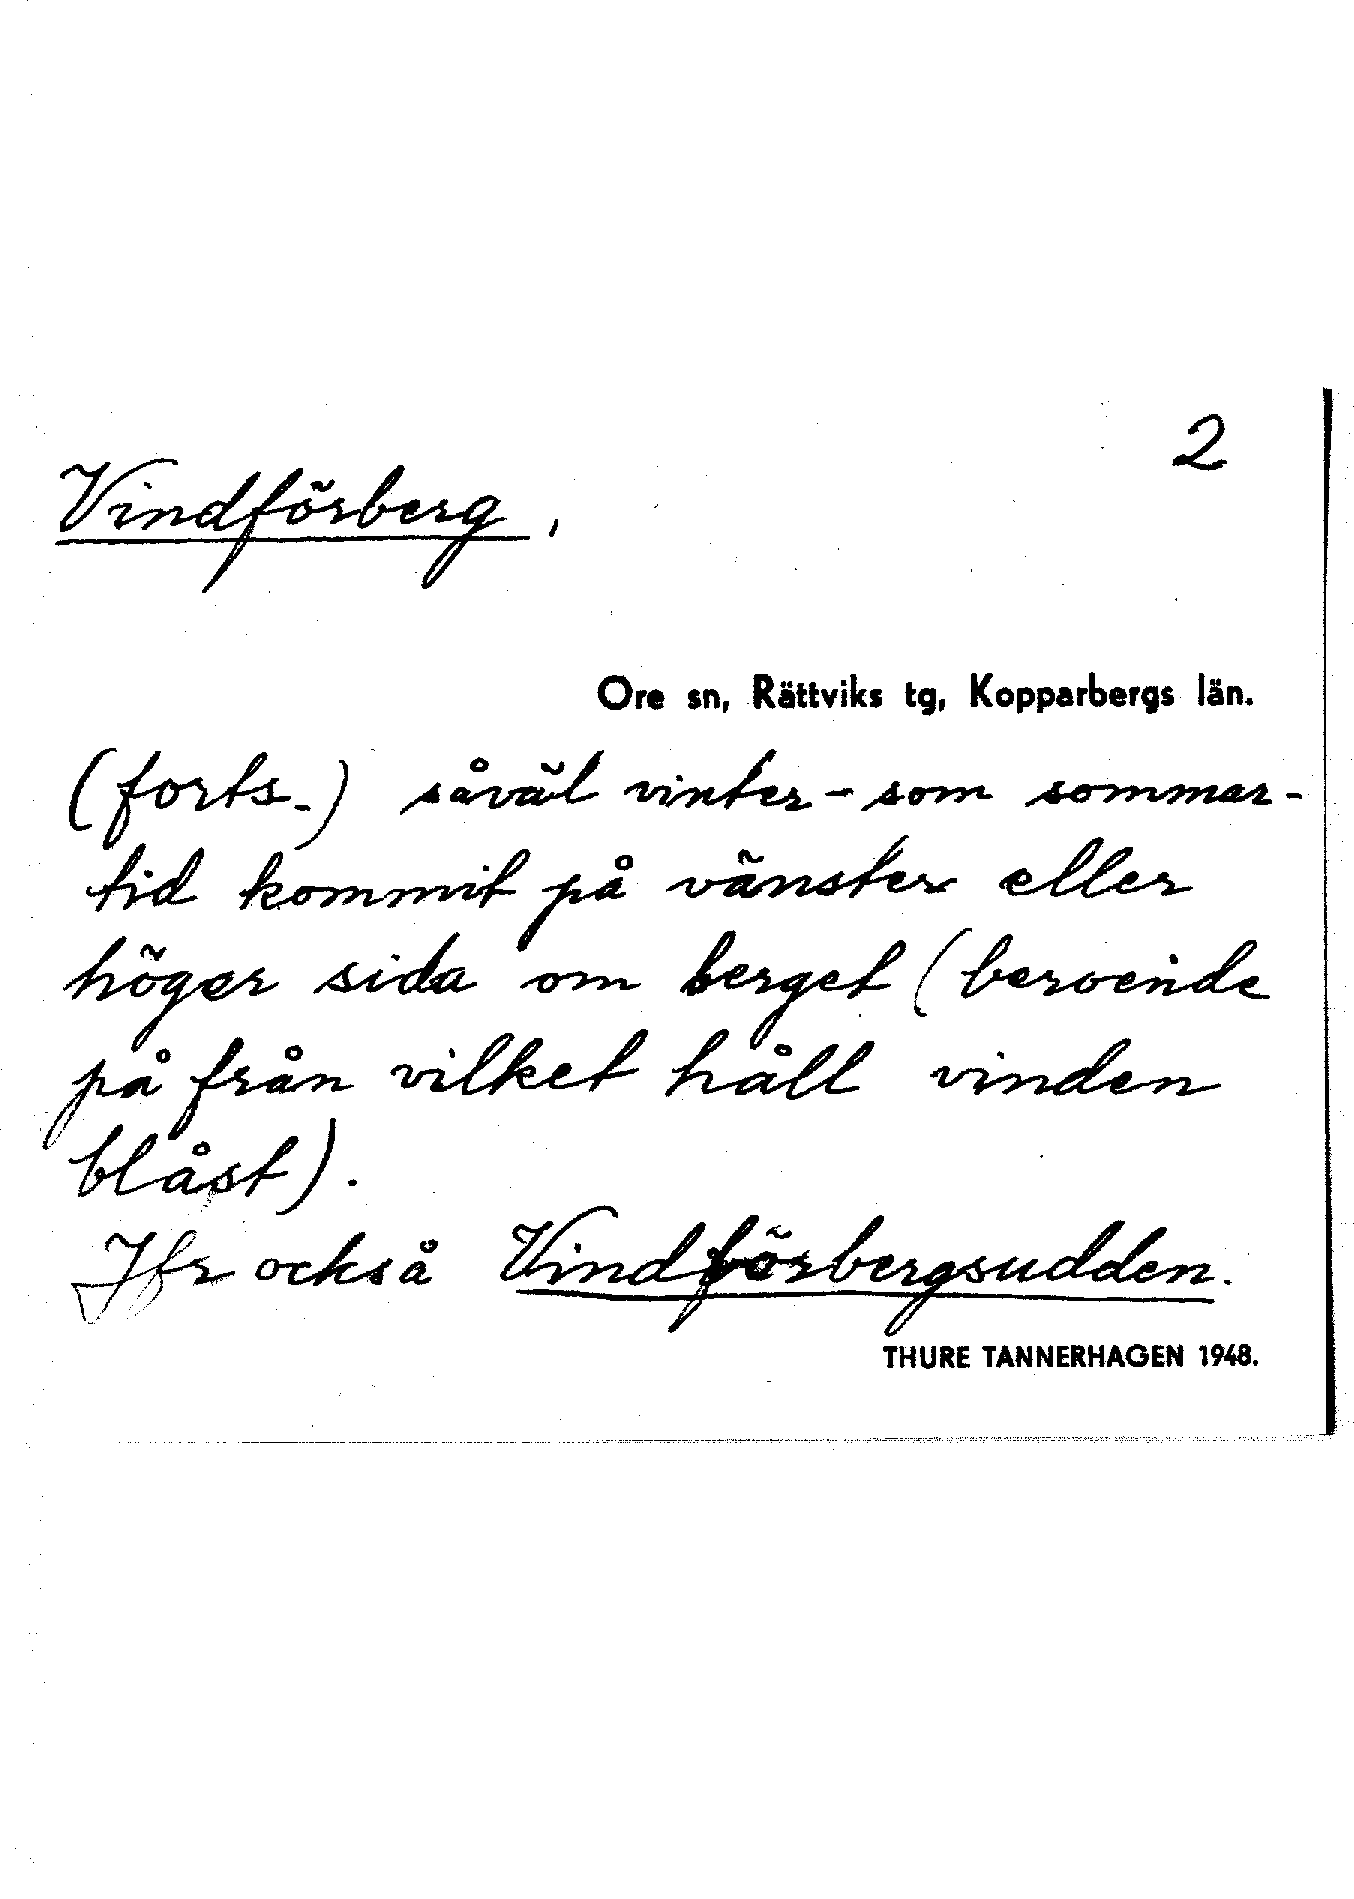 2
Vindförberg,
Ore sn, Rättviks tg, Kopparbergs län.
(forts.) såväl vinter- som sommar-
tid kommit på vänster eller
höger sida om berget (beroende
på från vilket håll vinden
blåst).
Jfr också Vindförbergsudden.
THURE TANNERHAGEN 1948.